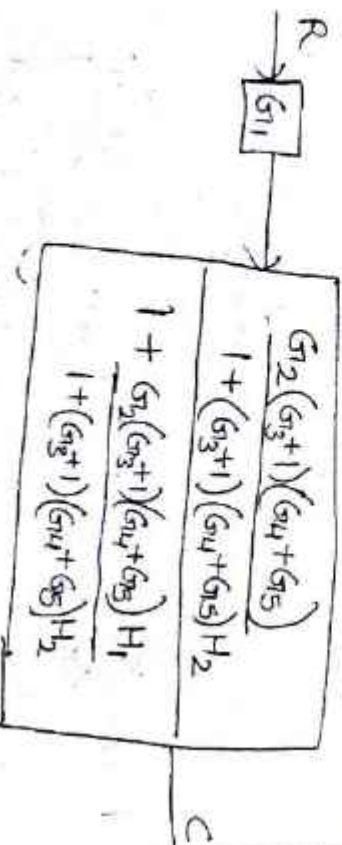 R
G1
G2(G3+1)(G4+G5)
1+(G3+1)(G4+G5)H2
1+ G2(G3+1)(G4+G5)H1
1+(G3+1)(G4+G5)H2
C